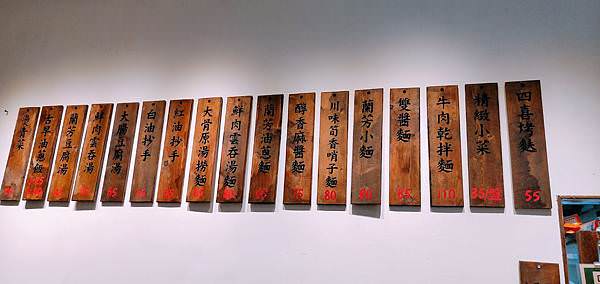 四喜烤麩
55
精緻小菜
牛肉乾拌麵
110
雙醬麵
蘭芳小麵
川味筍香哨子麵
80
醇香麻醬麵
蘭芳油蔥麵
鮮肉雲吞湯麵
大骨原湯撈麵
紅油抄手
白油抄手
大腸豆腐湯
鮮肉雲吞湯
蘭芳豆腐湯
古早油蔥飯
青菜